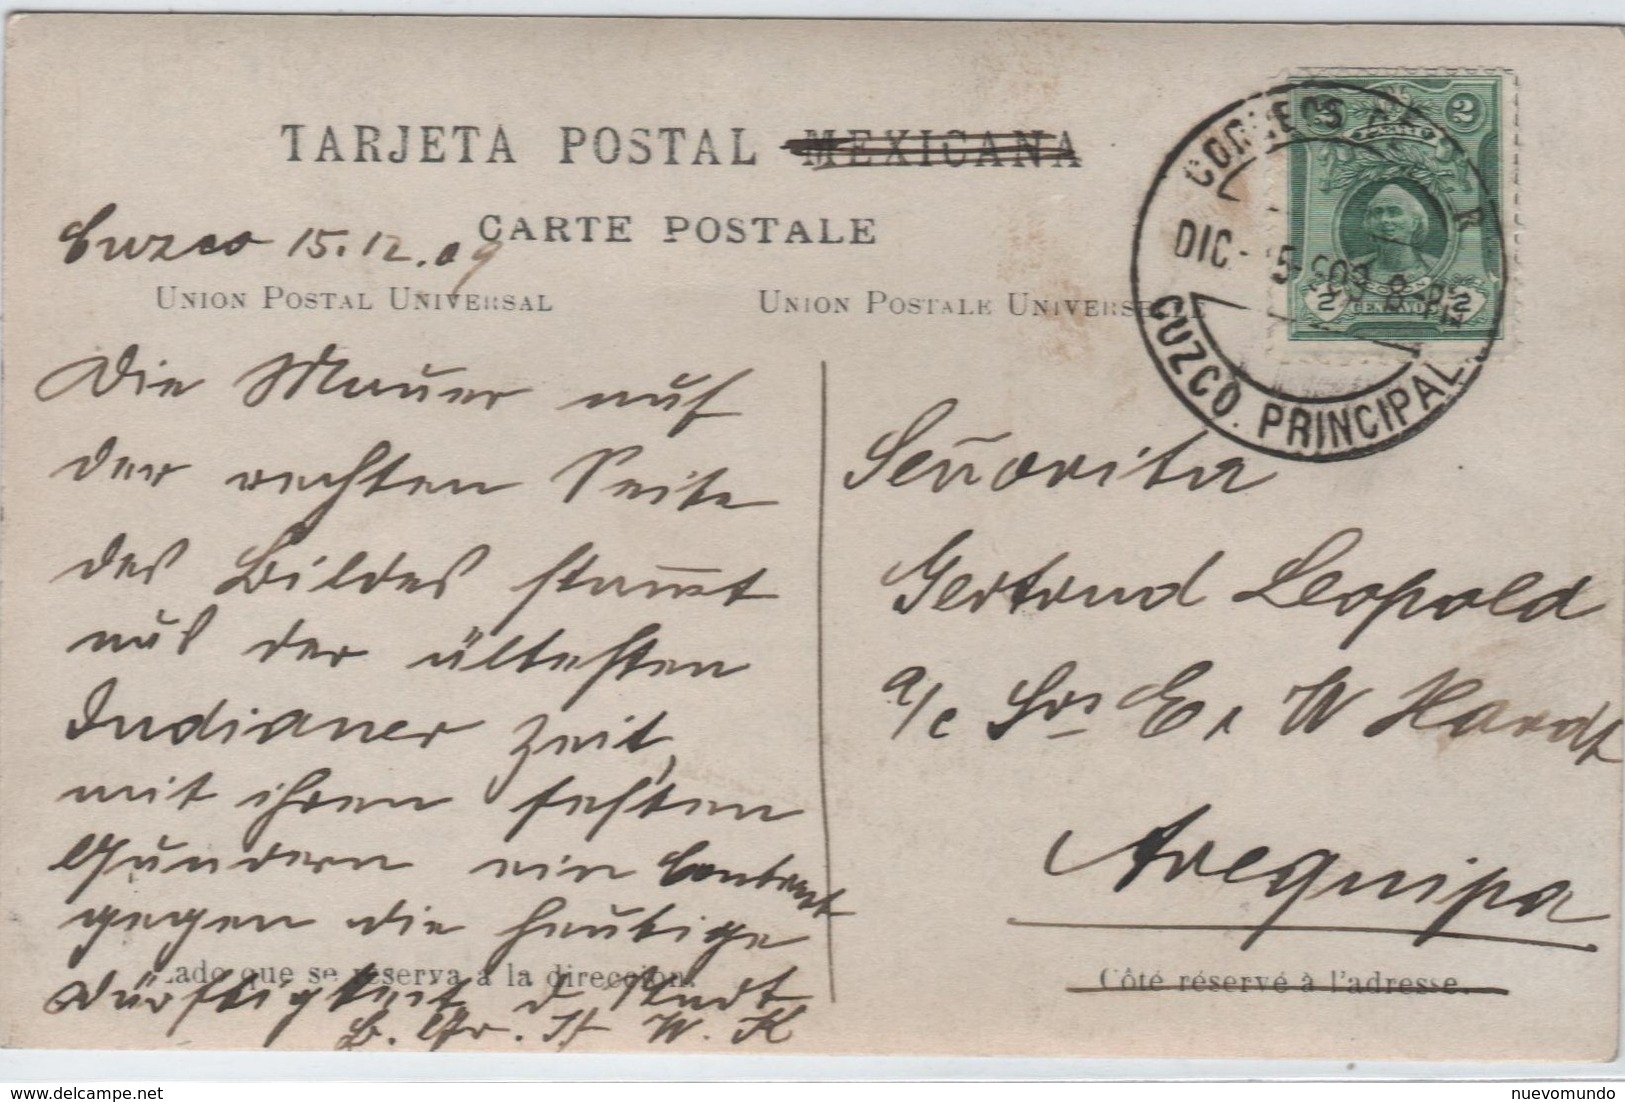 TARJETA POSTAL MEXICANA
CARTE POSTALE
Cuzco 15.12.09
UNION POSTAL UNIVERSAL
UNION POSTALE UNIVERSELLE
CORREOS DEL
DIC-15-909 8-
CUZCO. PRINCIPAL.
2 2
2 CENTAVOS 2
Die Mauer auf
der rechten Seite
des Bildes stam̅t
aus der ältesten
Indianer Zeit,
mit ihren festen
Quadern ein Contrast
gegen die heutige
Dürftigkeit d. Stadt.
B. Gr. If W. K
Señorita
Gertrud Leopold
a/c Srs E & W Hardt
Arequipa
Lado que se reserva à la direccion.
Côté réservé à l'adresse.
nuevomundo